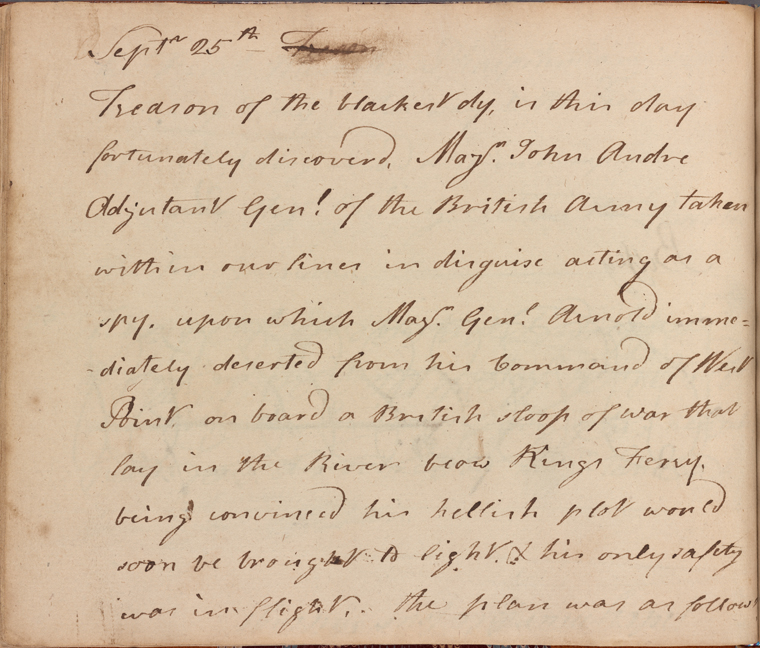 Septr 25th Treason
Treason of the blackest dy, is this day
fortunately discoverd, Majr. John Andre
Adjutant Genl. of the British Army taken
within our lines in disguise acting as a
spy, upon which Majr. Genl. Arnold imme=
-diately deserted from his Command of West
Point on board a British sloop of war that
lay in the River beow Kings Ferry.
being convinced his hellish plot would
soon be brought to light. & his only safty
was in flight. the plan was as follows